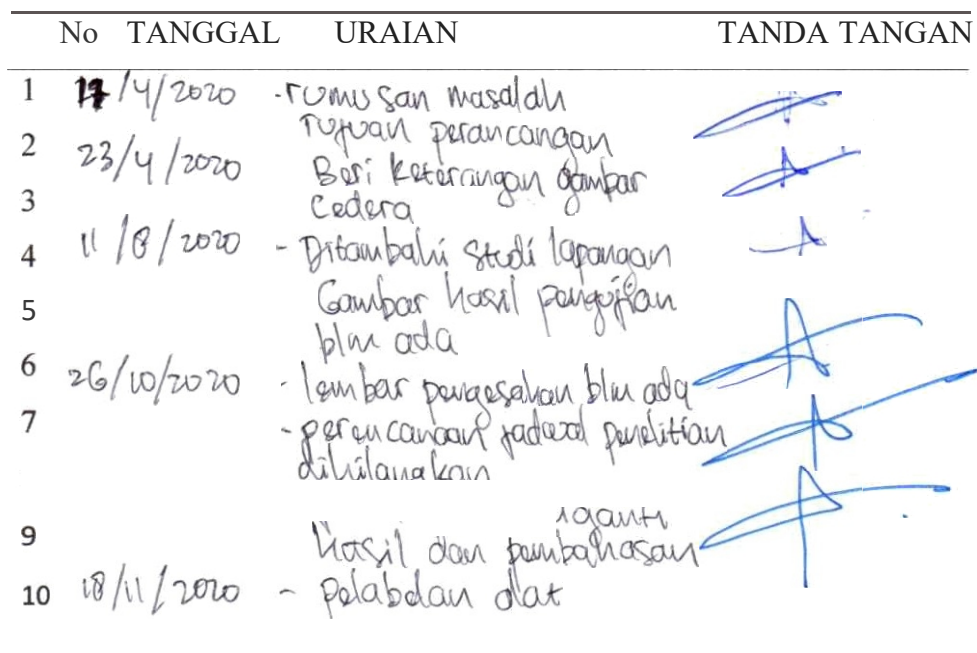 No TANGGAL URAIAN TANDA TANGAN
1 17/4/2020 - rumusan masalah
Tujuan perancangan
2 23/4/2020 Beri keterangan gambar
3 Cedera
4 11/8/2020 - Ditambahi studi lapangan
Gambar hasil pengujian
5 blm ada
6 26/10/2020 - lembar pengesahan blm ada
7 - perencanaan jadwal penelitian
dihilangkan
iganti
9 Hasil dan pembahasan
10 18/11/2020 - Pelabelan alat